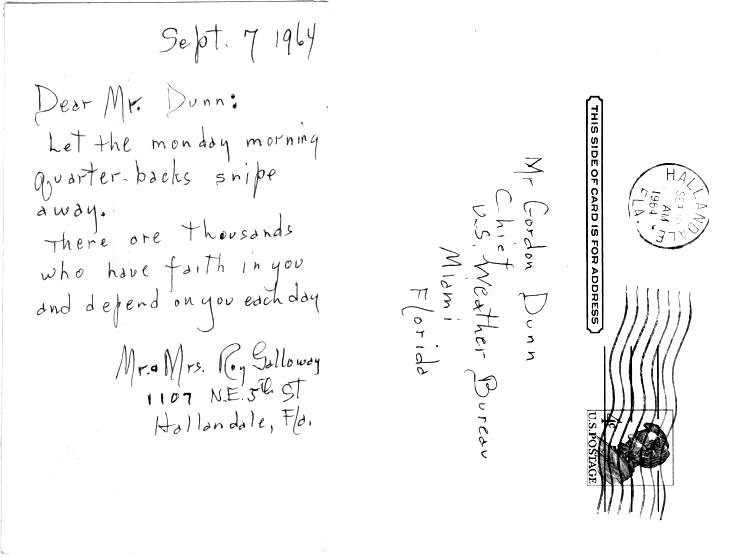 Sept. 7 1964
Dear Mr. Dunn:
Let the monday morning
quarter-backs snipe
away.
There are thousands
who have faith in you
and depend on you each day
Mr. & Mrs. Roy Galloway
1107 N.E. 5th St
Hallandale, Fla.
Mr Gordon Dunn
Chief
U.S. Weather Bureau
Miami
Florida
THIS SIDE OF CARD IS FOR ADDRESS
HALLANDALE
SEP
AM
1964
FLA.
4¢
U.S. POSTAGE